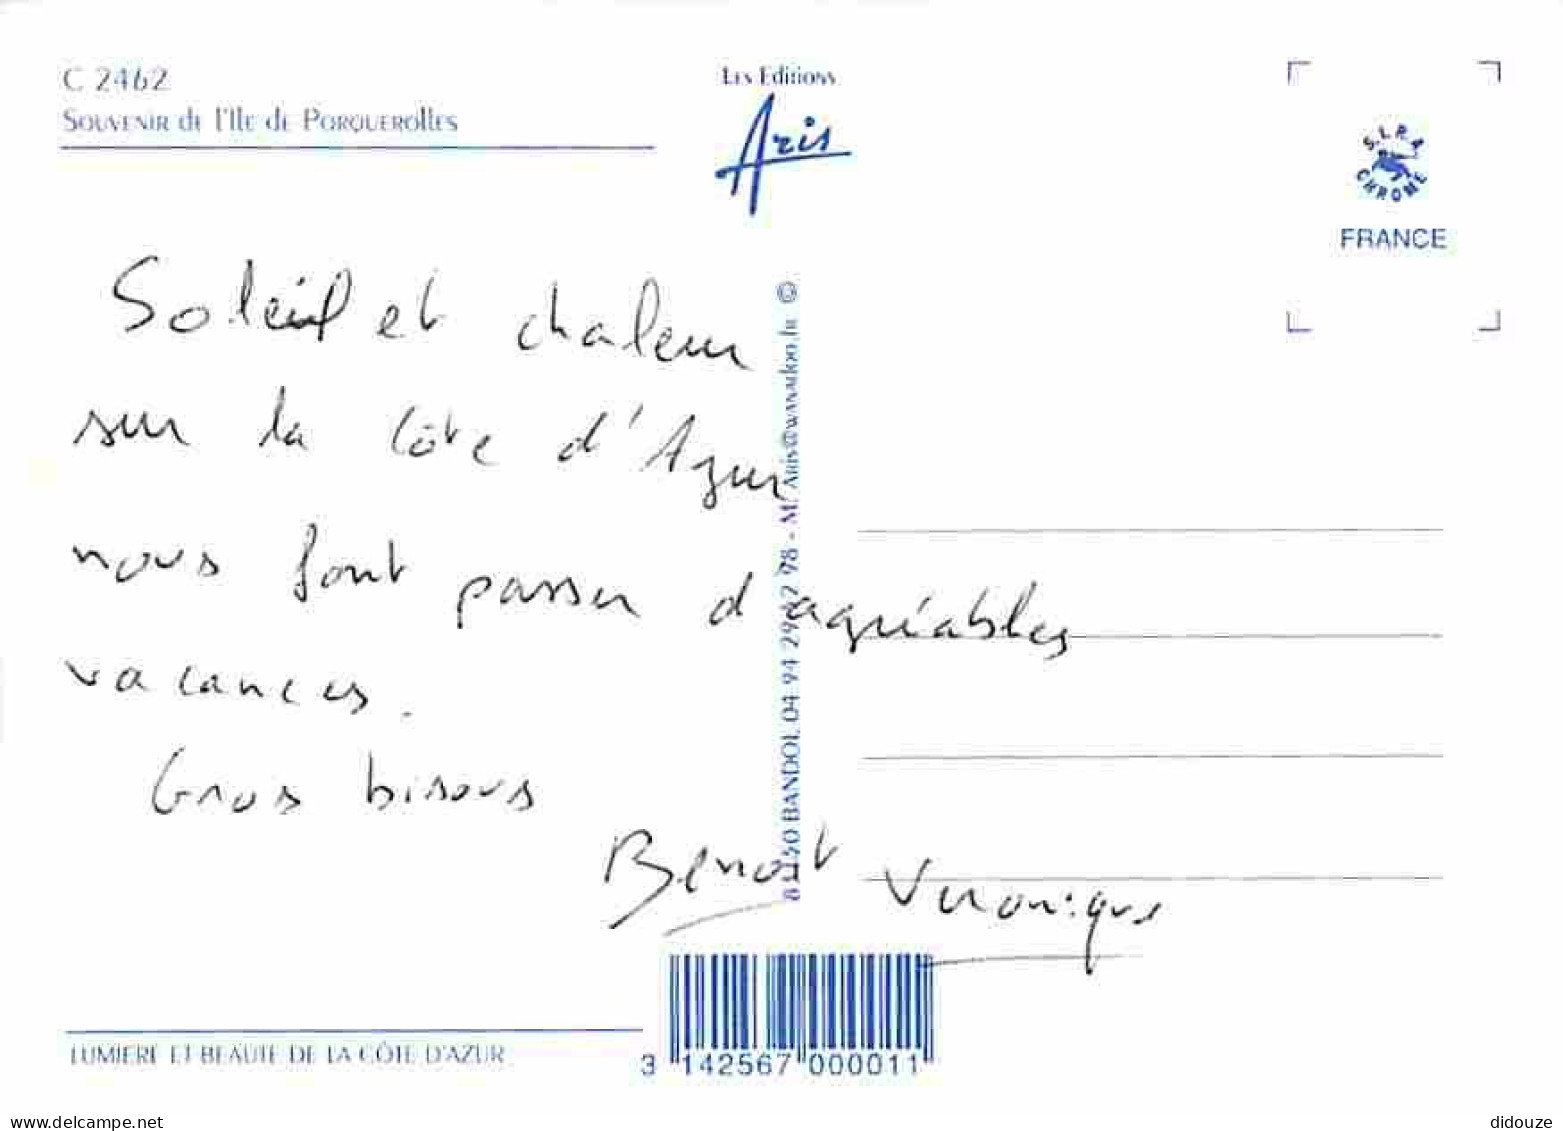 C 2462
Souvenir de l'Ile de Porquerolles
Les Editions
Aris
S.L.R.A
CHROME
FRANCE
Soleil et chaleur
sur la Côte d'Azur
nous font passer d'agréables
vacances.
Gros bisous
Benoit Véronique
83150 BANDOL 04 94 29 42 98 - M. Aris@wanadoo.fr ©
LUMIERE ET BEAUTE DE LA CÔTE D'AZUR
3 142567 000011
delcampe.net
didouze